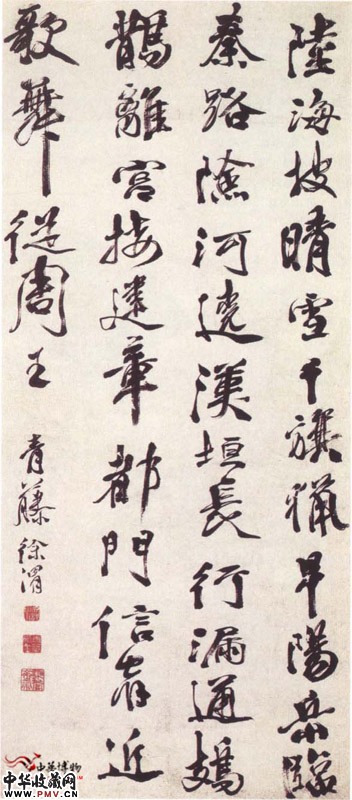 陸海披晴雪千獵早陽岳臨
秦路險河遶漢垣長行漏通
鵲離宮接都門信宵近
歌舞從周王
青藤徐渭
中华收藏网
WWW.PMV.CN